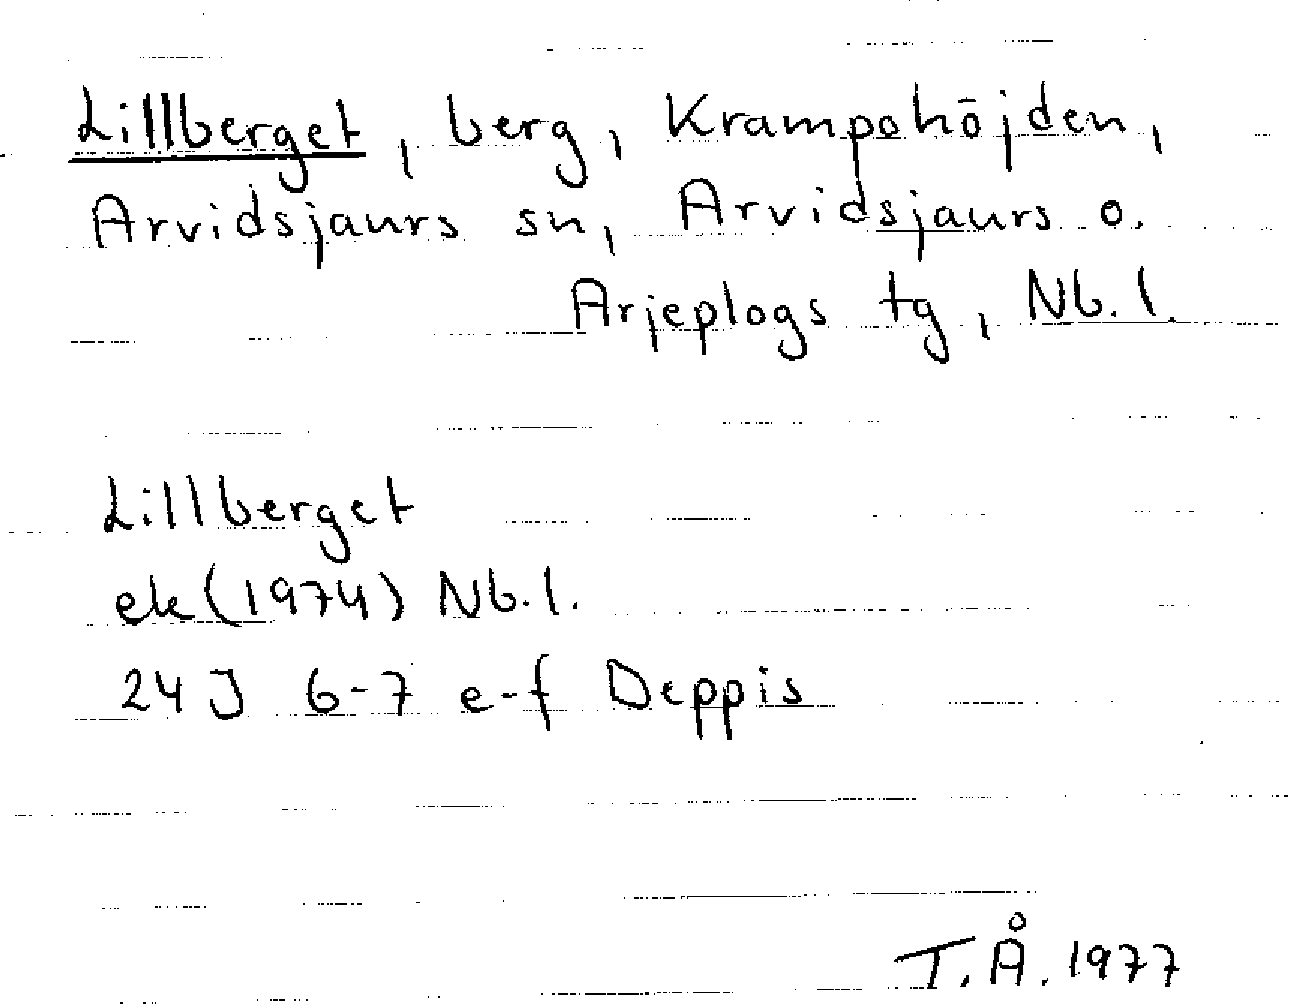 Lillberget, berg, Krampohöjden,
Arvidsjaurs sn, Arvidsjaurs o.
Arjeplogs tg, Nb. l.
Lillberget
ek (1974) Nb. l.
24 J 6-7 e-f Deppis
T. Å. 1977